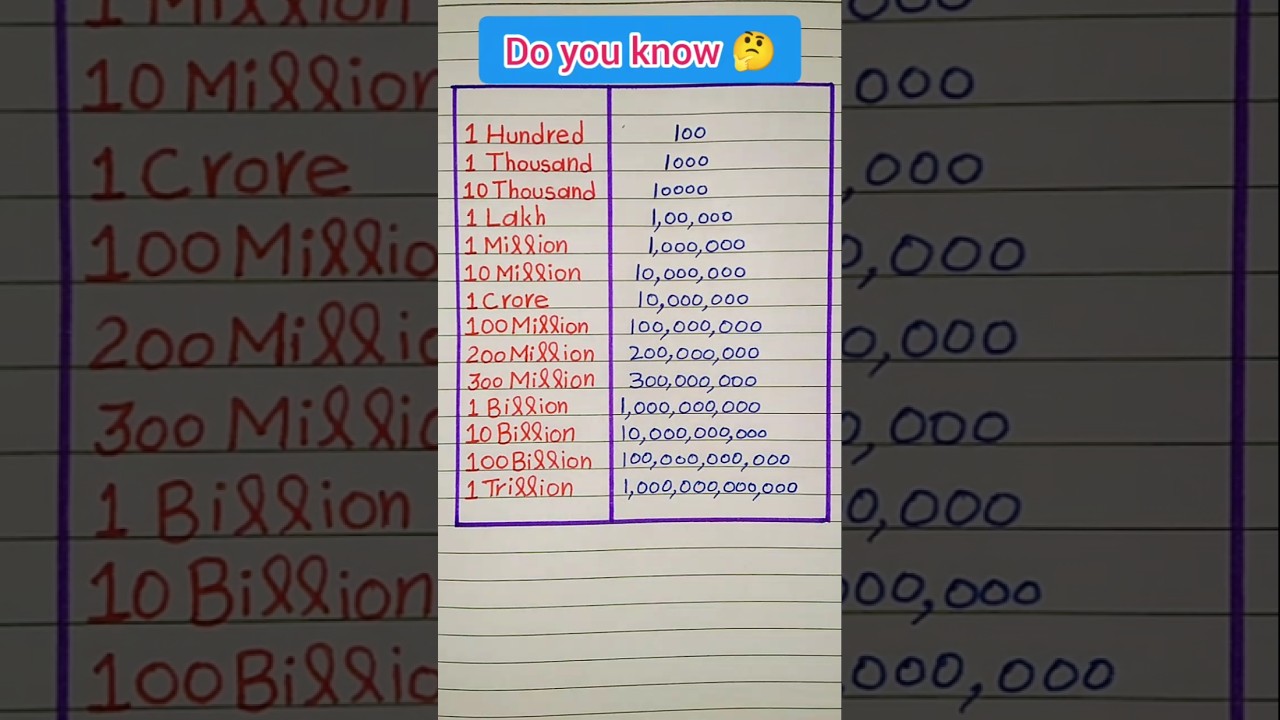 Do you know 🤔
1 Hundred 100
1 Thousand 1000
10 Thousand 10000
1 Lakh 1,00,000
1 Million 1,000,000
10 Million 10,000,000
1 Crore 10,000,000
100 Million 100,000,000
200 Million 200,000,000
300 Million 300,000,000
1 Billion 1,000,000,000
10 Billion 10,000,000,000
100 Billion 100,000,000,000
1 Trillion 1,000,000,000,000